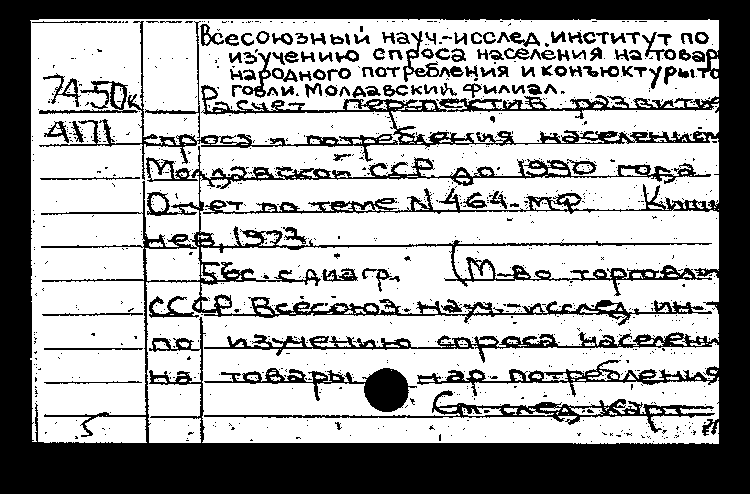 Всесоюзный науч.-исслед. институт по
изучению спроса населения на товар
народного потребления и конъюктуры то
74-50к говли. Молдавский филиал.
Расчет перспектив развития
4171 спроса и потребления населением
Молдавской ССР до 1990 года
Отчет по теме N 464-МФ. Киши
нев, 1973.
56с. с диагр. (М-во торговли
СССР. Всесоюз. науч.-исслед. ин-т
по изучению спроса населени
на товары нар. потребления
См. след. карт.
5